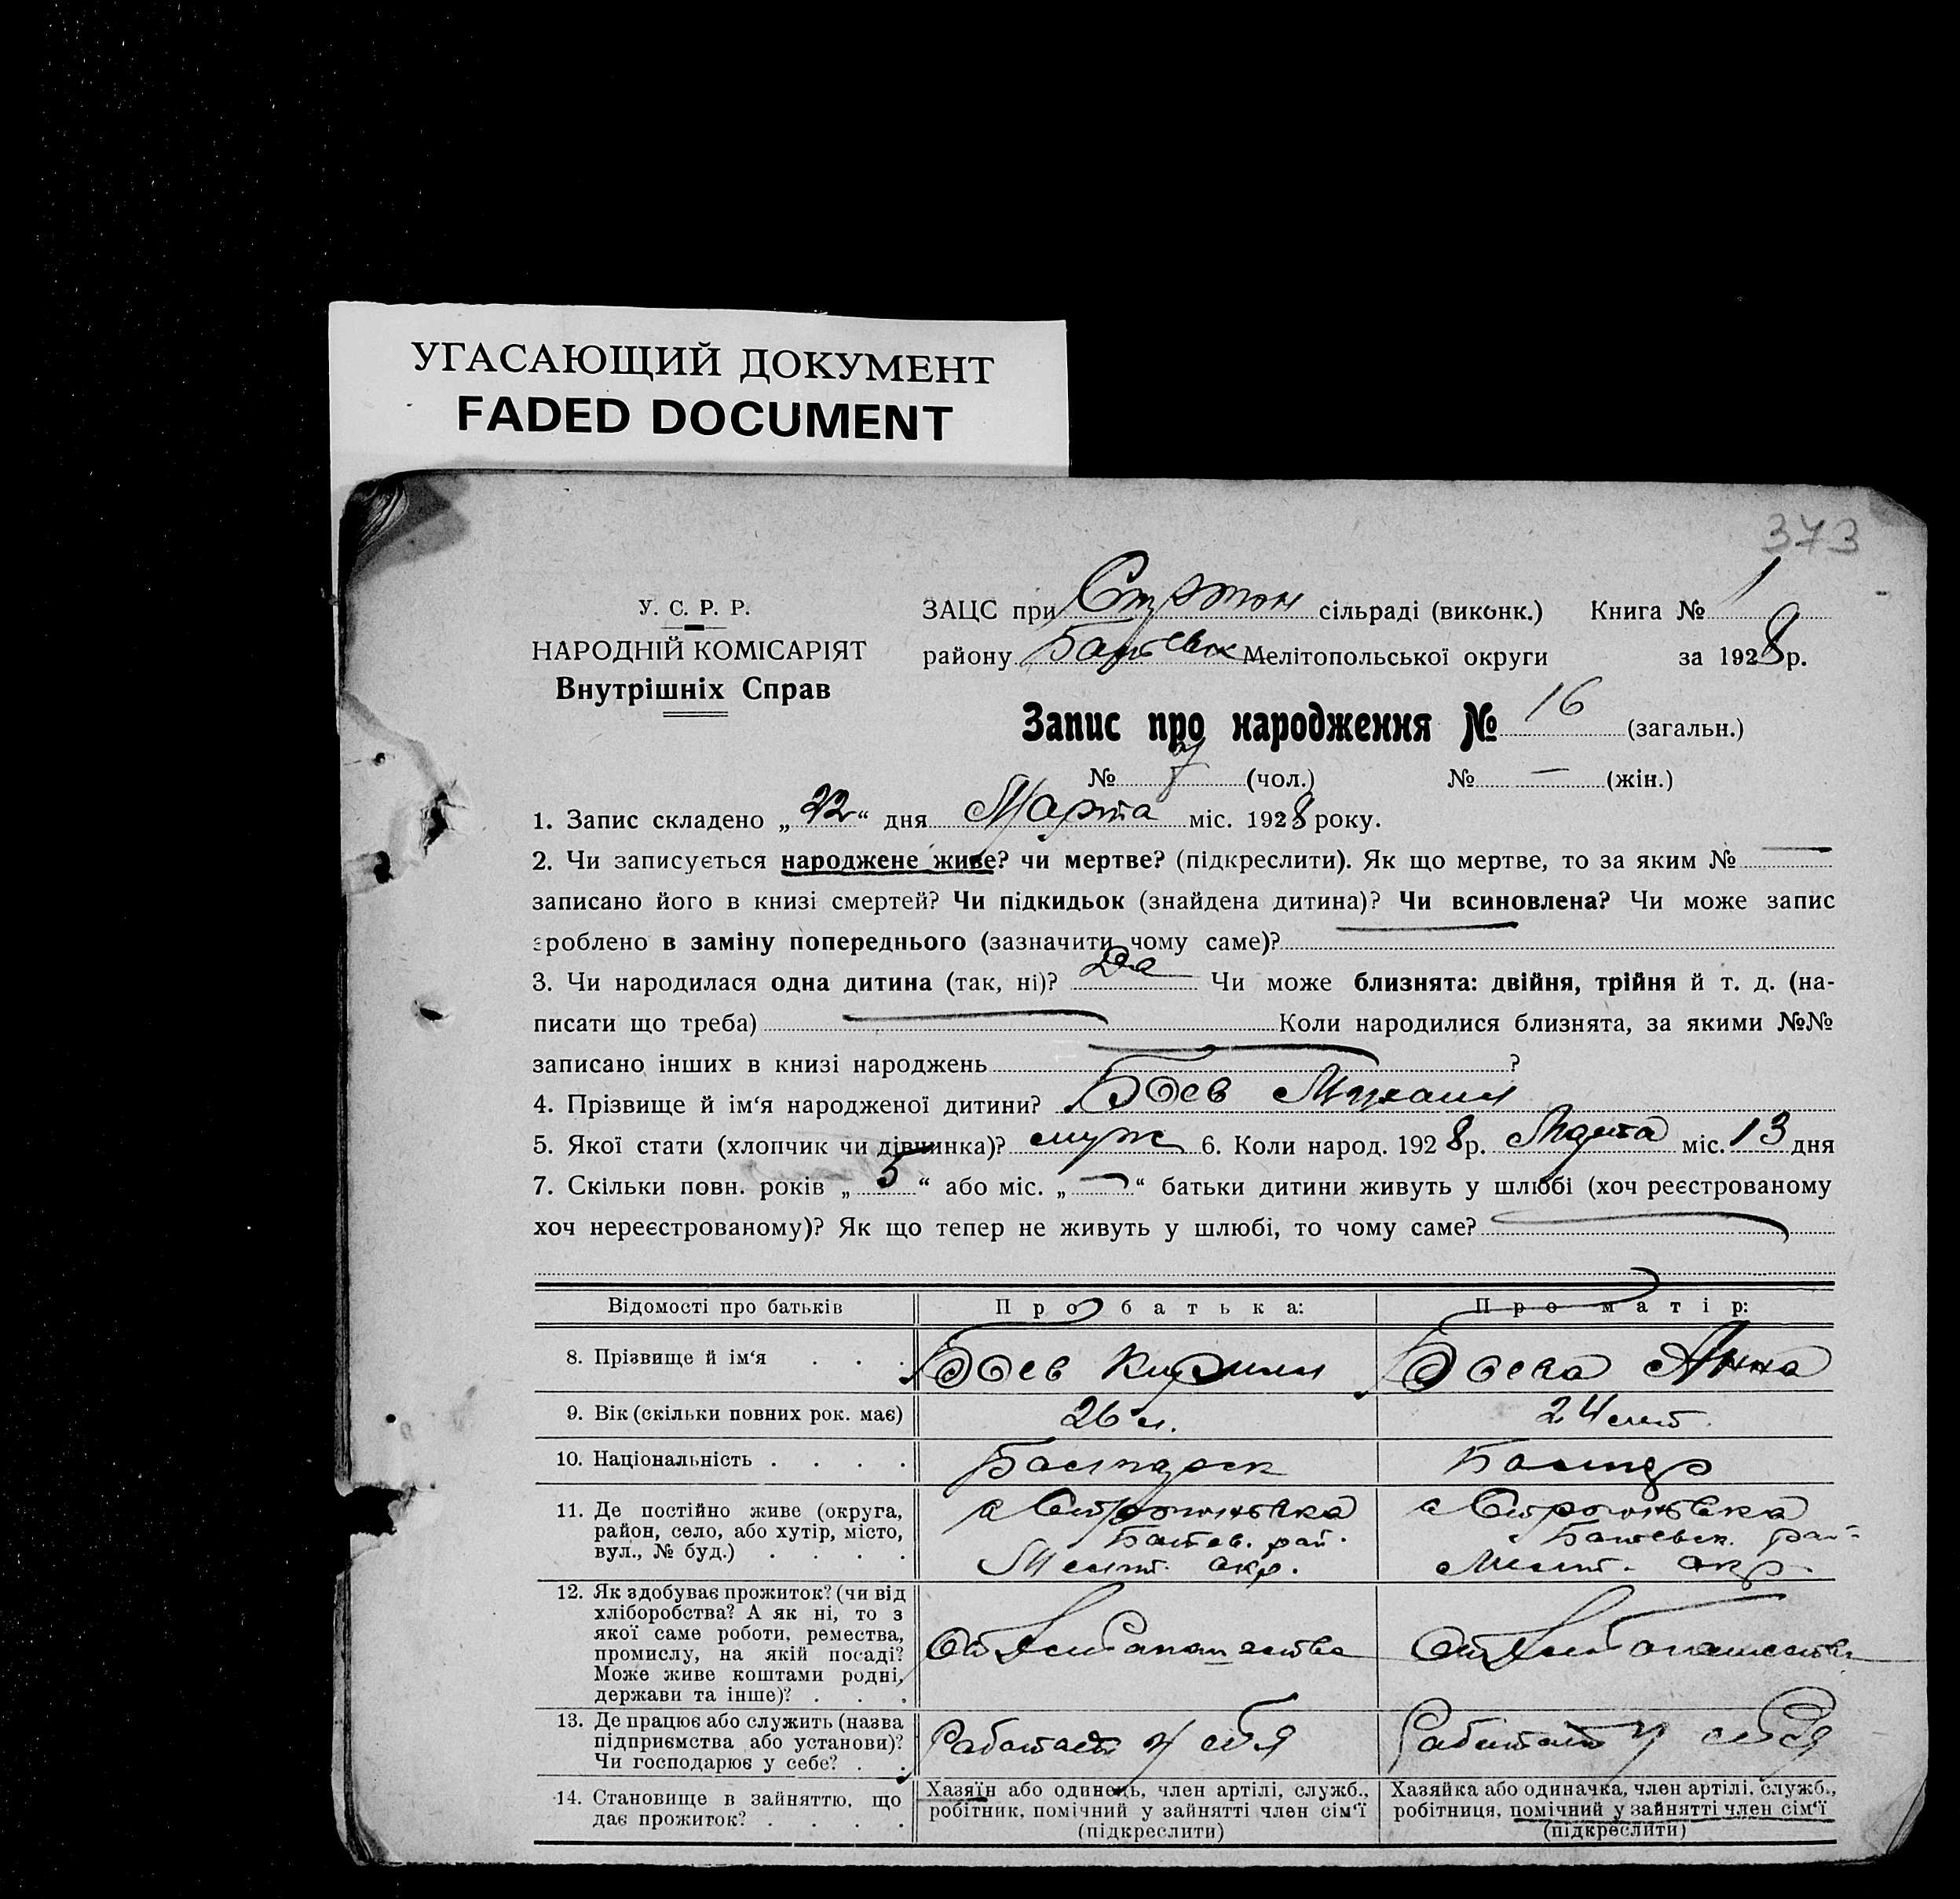 УГАСАЮЩИЙ ДОКУМЕНТ
FADED DOCUMENT
373
У. С. Р. Р.
НАРОДНІЙ КОМІСАРІЯТ
Внутрішніх Справ
ЗАЦС при сільраді (виконк.) Книга № 1
району Мелітопольської округи за 1928 р.
Запис про народження № 16 (загальн.)
№ (чол.) № — (жін.)
1. Запис складено „22“ дня Марта міс. 1928 року.
2. Чи записується народжене живе? чи мертве? (підкреслити). Як що мертве, то за яким № —
записано його в книзі смертей? Чи підкидьок (знайдена дитина)? Чи всиновлена? Чи може запис
зроблено в заміну попереднього (зазначити чому саме)?
3. Чи народилася одна дитина (так, ні)? Да Чи може близнята: двійня, трійня й т. д. (на-
писати що треба) — Коли народилися близнята, за якими №№
записано інших в книзі народжень — ?
4. Прізвище й ім‘я народженої дитини? Боев Михаил
5. Якої стати (хлопчик чи дівчинка)? муж 6. Коли народ. 1928 р. Марта міс. 13 дня
7. Скільки повн. років „5“ або міс. „—“ батьки дитини живуть у шлюбі (хоч реєстрованому
хоч нереєстрованому)? Як що тепер не живуть у шлюбі, то чому саме? —
Відомості про батьків Про батька: Про матір:
8. Прізвище й ім‘я . . . Боев Кирилл Боева Анна
9. Вік (скільки повних рок. має) 26 л. 24 лет
10. Національність . . . . Болгарск Болгар
11. Де постійно живе (округа,
район, село, або хутір, місто,
вул., № буд.) . . . .
с Строгоновка с Строгоновка
рай. рай.
Мелит. окр. Мелит. окр.
12. Як здобуває прожиток? (чи від
хліборобства? А як ні, то з
якої саме роботи, ремества,
промислу, на якій посаді?
Може живе коштами родні,
держави та інше)? . . .
От хлебопашества От хлебопашества
13. Де працює або служить (назва
підприємства або установи)?
Чи господарює у себе? . .
Работает у себя Работает у себя
14. Становище в зайняттю, що
дає прожиток? . . . .
Хазяїн або одинець, член артілі, служб.,
робітник, помічний у зайнятті член сім‘ї
(підкреслити)
Хазяйка або одиначка, член артілі, служб.,
робітниця, помічний у зайнятті член сім‘ї
(підкреслити)